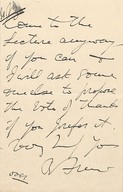 Come to the
lecture anyway
if you can &
I will ask some
one else to propose
the vote of thanks
if you prefer it
Very truly yours
over